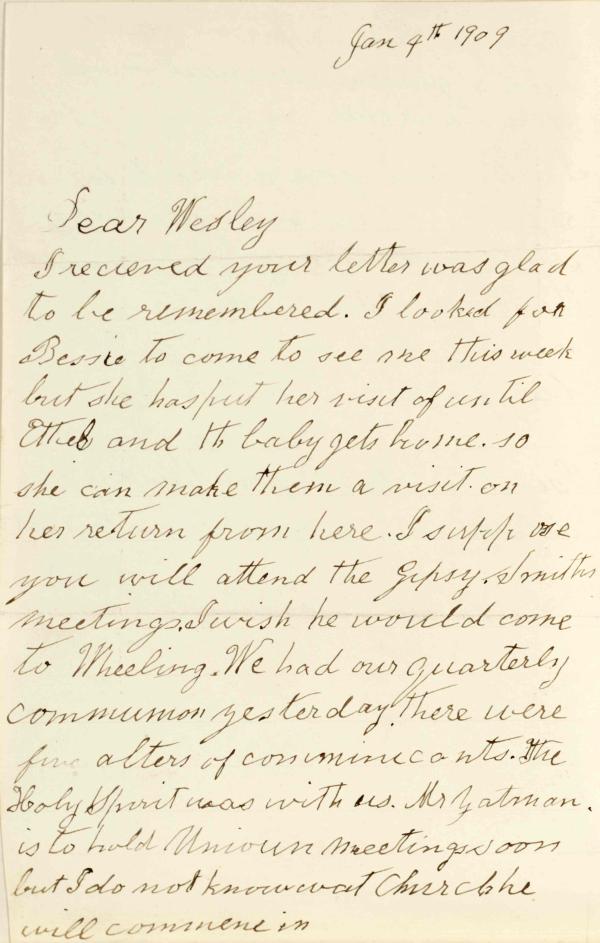 Jan 4th 1909
Dear Wesley
I recieved your letter was glad
to be remembered. I looked for
Bessie to come to see me this week
but she has put her visit of until
Ethel and th baby gets home. so
she can make them a visit on
her return from here. I suppose
you will attend the Gipsy Smiths
meetings. I wish he would come
to Wheeling. We had our quarterly
communion yesterday there were
five alters of comminicants. The
Holy Spirit was with us. Mr Yatman.
is to hold Unioun meetings soon
but I do not know wat Church he
will commene in